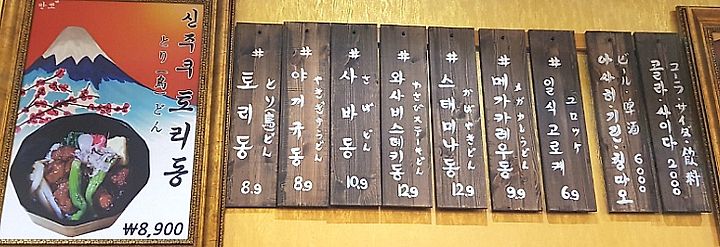 만푸
신주쿠토리동
とり鳥どん
₩8,900
# 토리동
とり鳥どん
8.9
# 야끼규동
やきぎゅうどん
8.9
# 사바동
さばどん
10.9
# 와사비스테키동
わさびステーキどん
12.9
# 스태미나동
かばやきどん
12.9
# 메가카레우동
メガカレうどん
9.9
# 일식고로케
コロッケ
6.9
아사히·기린·칭따오
ビール 啤酒
6000
콜라·사이다
コーラ サイダ 飲料
2000